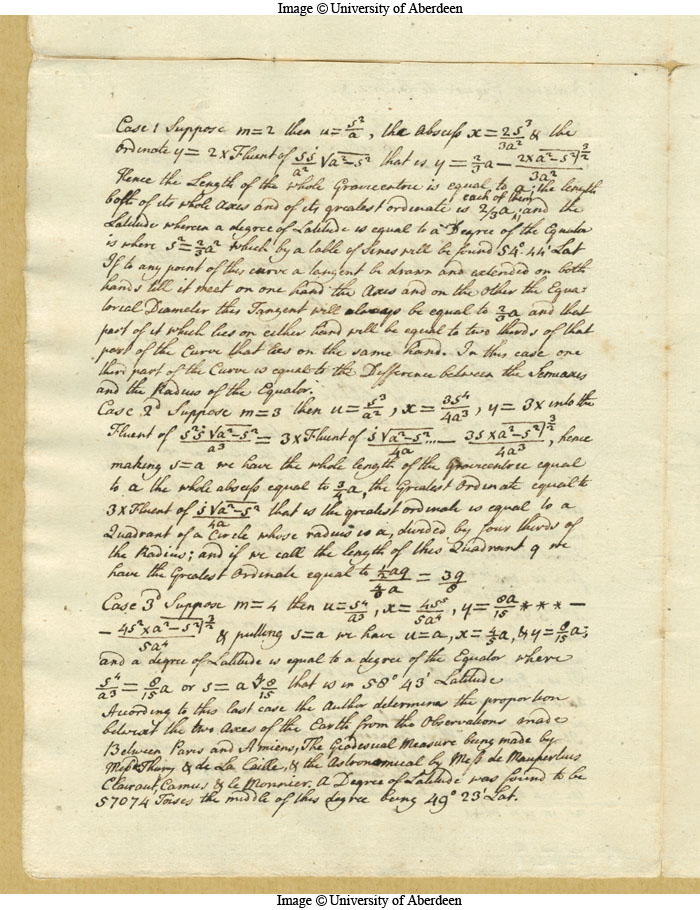 Image © University of Aberdeen
Case 1 Suppose m=2 then u=s²/a, the Absciss x=2s³/3a² & the
Ordinate y=2×Fluent of sṡ/a² √a²-s² that is y=⅔a-2×(a²-s²)^3/2/3a²
Hence the Length of the whole Gravicentric is equal to a; the length
both of its whole Axis and of its greatest ordinate is each of them 2/3a, and the
Latitude wherein a degree of Latitude is equal to a Degree of the Equator
is where s²=⅔a² which by a table of sines will be found 54°.44' Lat
If to any point of this curve a tangent be drawn and extended on both
hands till it meet on one hand the Axis and on the other the Equa-
torial Diameter this Tangent will always be equal to ⅔a and that
part of it which lies on either hand will be equal to two thirds of that
part of the Curve that lies on the same hand. In this case one
third part of the Curve is equal to the Difference between the Semiaxis
and the Radius of the Equator.
Case 2d Suppose m=3 then u=s³/a², x=3s⁴/4a³, y=3× into the
Fluent of s²ṡ√a²-s²/a³=3×Fluent of ṡ√a²-s²/4a - 3s×(a²-s²)^3/2/4a³, hence
making s=a we have the whole length of the Gravicentric equal
to a the whole absciss equal to ¾a, the Greatest Ordinate equal to
3×Fluent of ṡ√a²-s²/4a that is the greatest ordinate is equal to a
Quadrant of a Circle whose radius is a, divided by four thirds of
the Radius; and if we call the length of this Quadrant q we
have the Greatest Ordinate equal to ½aq/(4/3)a = 3q/8
Case 3d Suppose m=4 then u=s⁴/a³, x=4s⁵/5a⁴, y=8a/15 * * * -
- 4s²×(a²-s²)^3/2/5a⁴ & putting s=a we have u=a, x=⅘a, & y=8/15a,
and a degree of Latitude is equal to a degree of the Equator where
s⁴/a³=8/15a or s=a∜8/15 that is in 58° 43' Latitude
According to this last case the Author determines the proportion
betwixt the two Axes of the Earth from the Observations made
Between Paris and Amiens, The Geodesical Measure being made by
Messrs Thury & de La Caille, & the Astronomical by Messrs de Maupertuis
Clairaut, Camus & le Monnier. A Degree of Latitude was found to be
57074 Toises the middle of this degree being 49° 23' Lat.
Image © University of Aberdeen